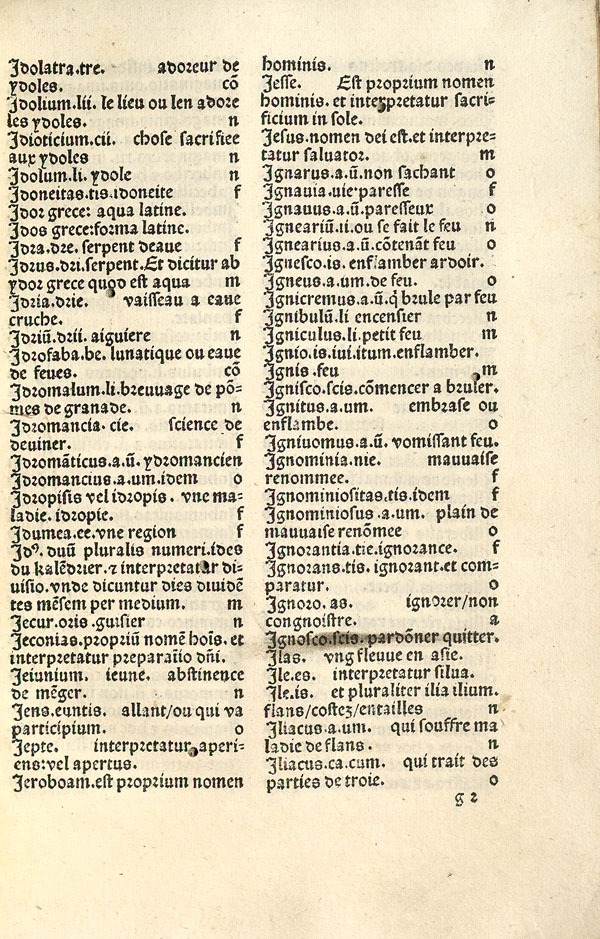 Idolatra.tre. adoreur de
ydoles. cõ
Idolium.lii. le lieu ou len adore
les ydoles. n
Idioticium.cii. chose sacrifiee
aux ydoles n
Idolum.li. ydole n
Idoneitas.tis.idoneite f
Idor grece: aqua latine.
Idos grece:forma latine.
Idra.dre. serpent deaue f
Idrus.dri.serpent.Et dicitur ab
ydor grece quod est aqua m
Idria.drie. vaisseau a eaue
cruche. f
Idriū.drii. aiguiere n
Idrofaba.be. lunatique ou eaue
de feues. cõ
Idromalum.li.breuuage de põ=
mes de granade. n
Idromancia.cie. science de
deuiner. f
Idromãticus.a.ū. ydromancien
Idromancius.a.um.idem o
Idropisis vel idropis. vne ma=
ladie.idropie. f
Idumea.ee.vne region f
Idꝰ.duū pluralis numeri.ides
du kalẽdrier.⁊ interpretatur di=
uisio.vnde dicuntur dies diuidẽ
tes mẽsem per medium. m
Iecur.oris.guisier n
Ieconias.propriū nomẽ hoĩs.et
interpretatur preparatio dñi.
Ieiunium. ieune. abstinence
de mẽger. n
Iens.euntis. allant/ou qui va
participium. o
Iepte. interpretatur aperi=
ens:vel apertus.
Ieroboam.est proprium nomen
hominis. n
Iesse. Est proprium nomen
hominis.et interpretatur sacri=
ficium in sole.
Iesus.nomen dei est.et interpre=
tatur saluator. m
Ignarus.a.ū.non sachant o
Ignauia.uie.paresse f
Ignauus.a.ū.paresseux o
Igneariū.ii.ou se fait le feu n
Ignearius.a.ū.cõtenãt feu o
Ignesco.is. enflamber ardoir.
Igneus.a.um.de feu. o
Ignicremus.a.ū.q̇ brule par feu
Ignibulū.li encensier n
Igniculus.li.petit feu m
Ignio.is.iui.itum.enflamber.
Ignis.feu m
Ignisco.scis.cõmencer a bruler.
Ignitus.a.um. embrase ou
enflambe. o
Igniuomus.a.ū. vomissant feu.
Ignominia.nie. mauuaise
renommee. f
Ignominiositas.tis.idem f
Ignominiosus.a.um. plain de
mauuaise renõmee o
Ignorantia.tie.ignorance. f
Ignorans.tis. ignorant.et com=
paratur. o
Ignoro.as. ignorer/non
congnoistre. a
Ignosco.scis.pardõner quitter.
Ilas. vng fleuue en asie.
Ile.es. interpretatur silua.
Ile.is. et pluraliter ilia ilium.
flans/costez/entailles n
Iliacus.a.um. qui souffre ma
ladie de flans. n
Iliacus.ca.cum. qui trait des
parties de troie. o
g 2